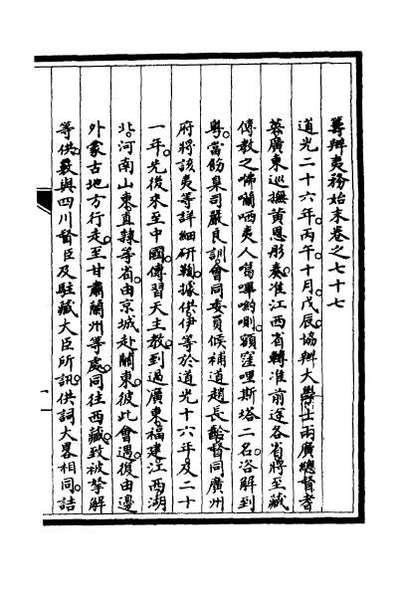 籌辦夷務始末卷之七十七
道光二十六年丙午十月戊辰協辦大學士兩廣總督耆
英廣東巡撫黃恩彤奏准江西省轉准前途各省將至藏
傳教之咈囒哂夷人噶嗶喲唎額窪哩斯塔二名咨解到
粵當飭臬司嚴良訓會同委員候補道趙長齡督同廣州
府將該夷等詳細研鞫據供伊等於道光十六年及二十
一年先後來至中國傳習天主教到過廣東福建江西湖
北河南山東直隸等省由京城赴關東彼此會遇復由邊
外蒙古地方行走至甘肅蘭州等處同往西藏致被拏解
等供覈與四川督臣及駐藏大臣所訊供詞大畧相同詰
一